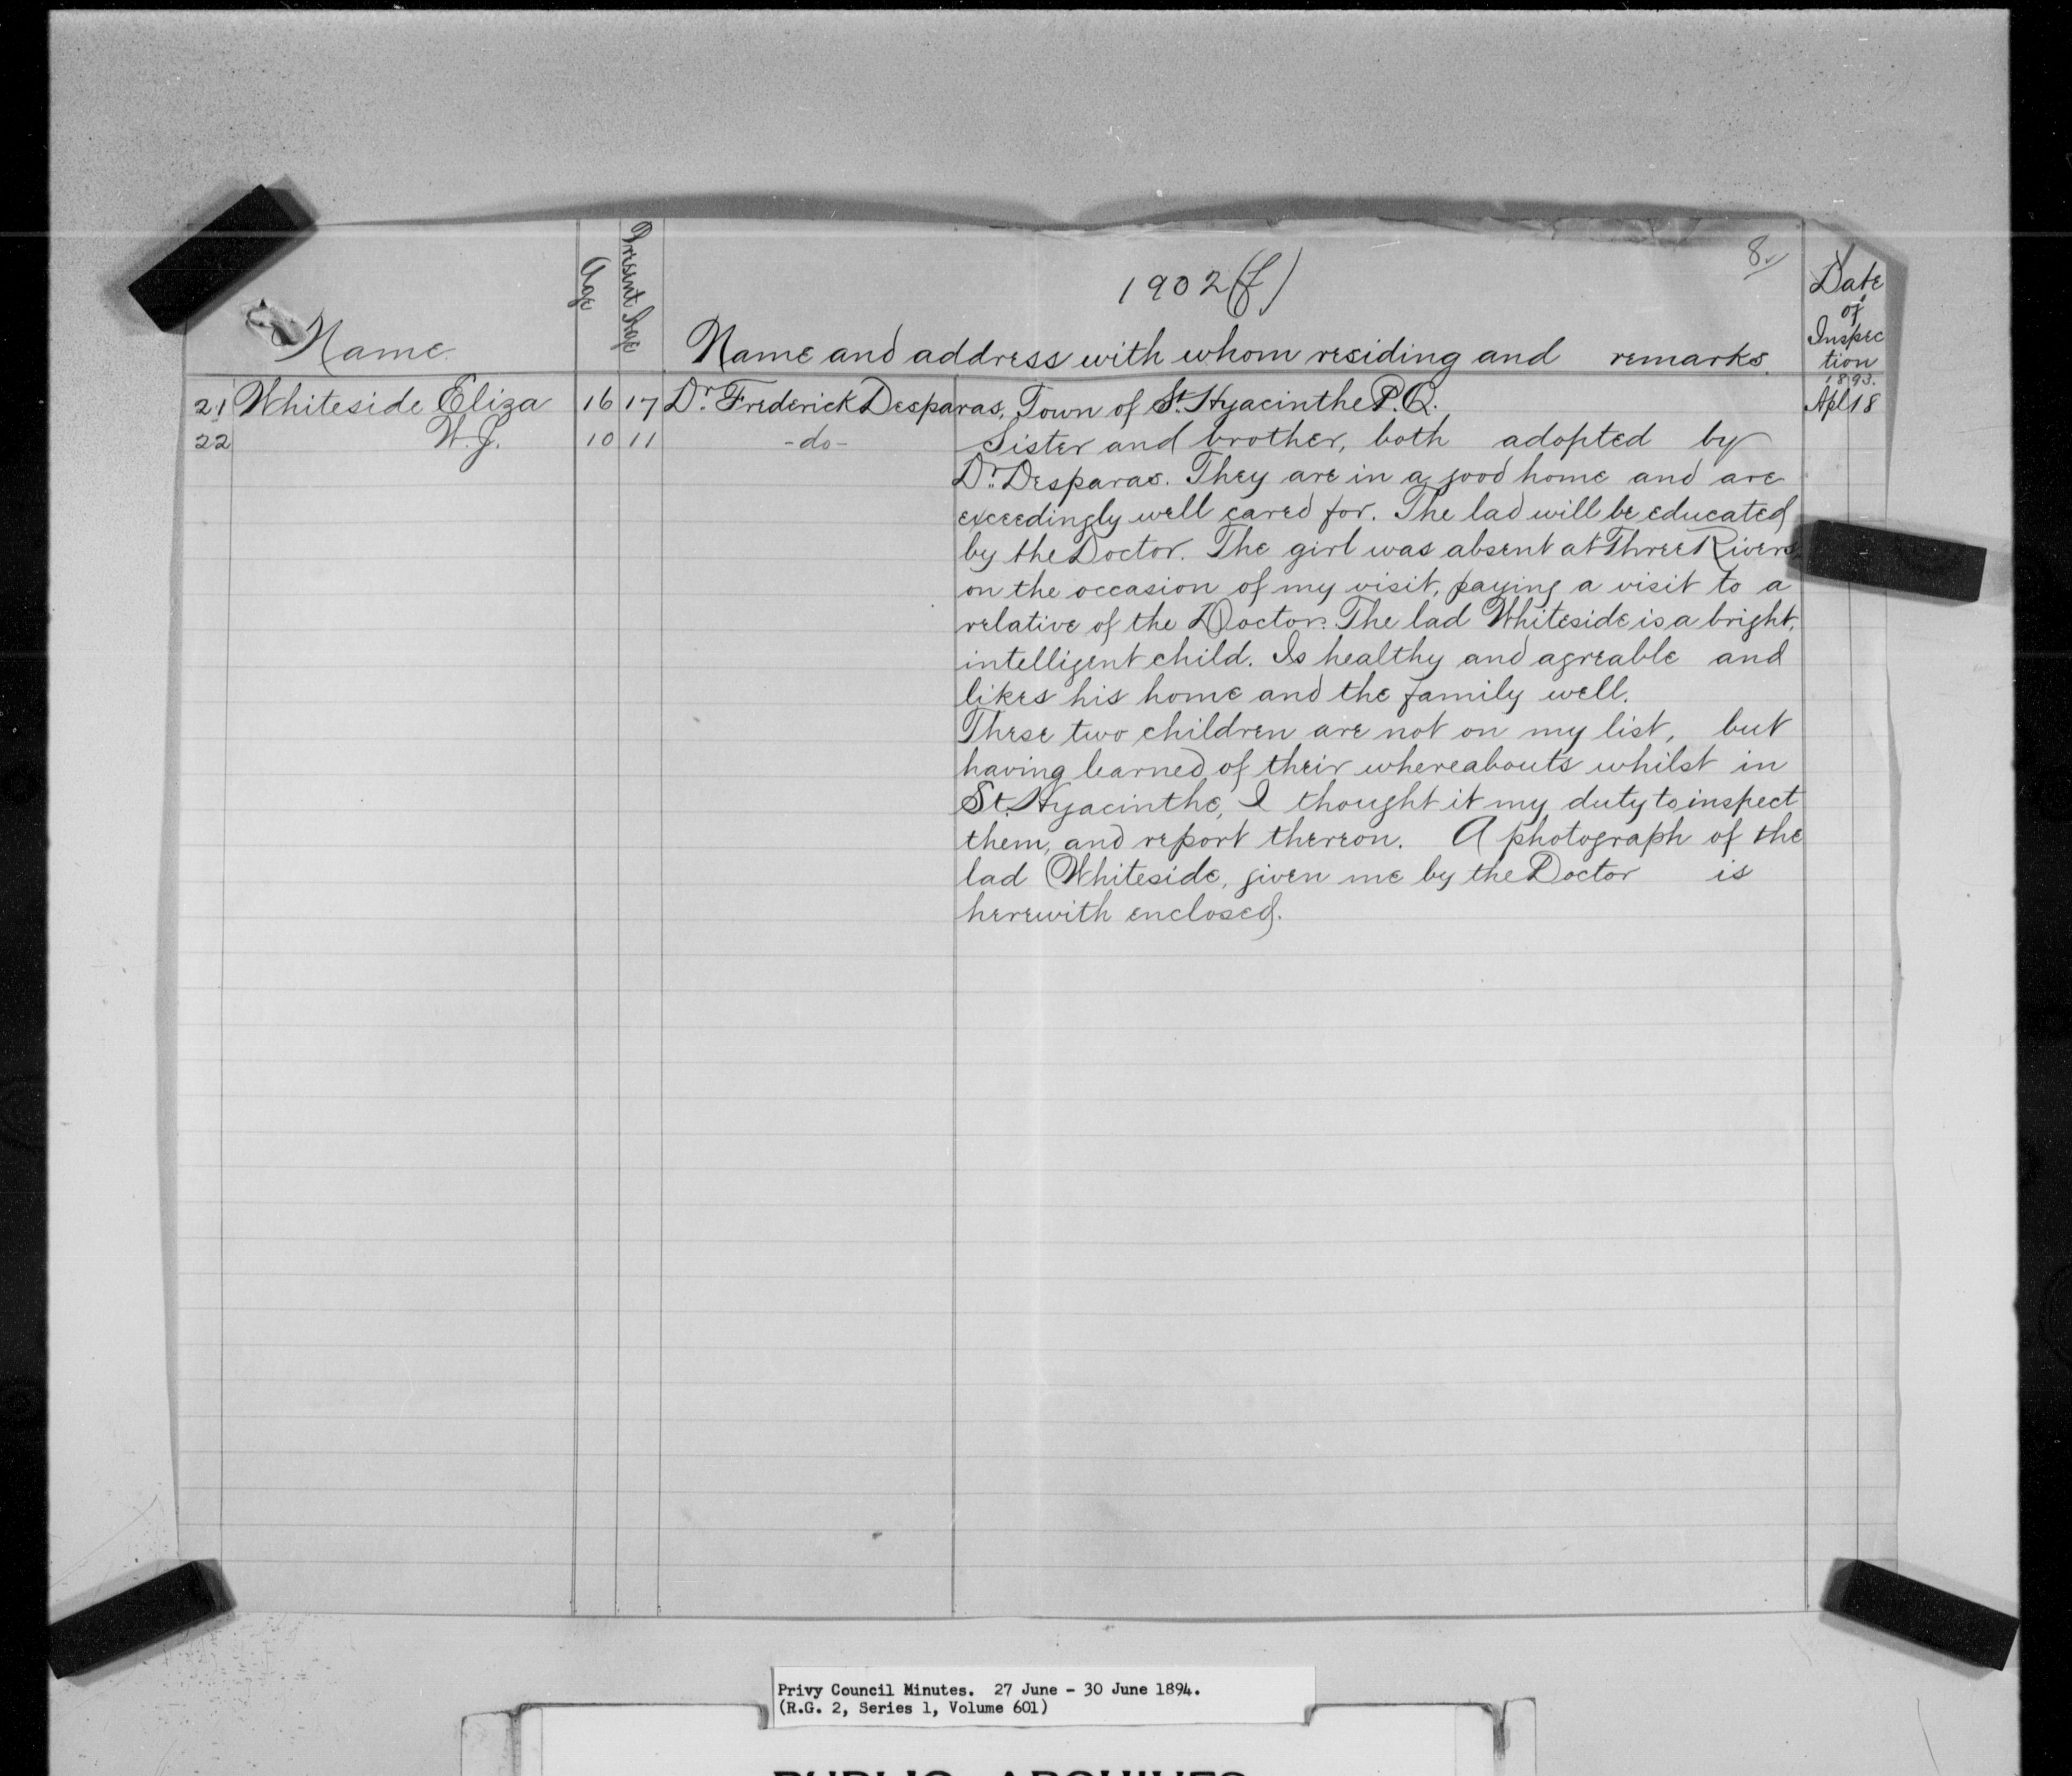 8.
1902(f)
Name
Age
Present Age
Name and address with whom residing and remarks.
Date
of
Inspec
tion
21 Whiteside Eliza 16 17 Dr. Frederick Desparas, Town of St. Hyacinthe P.Q. 1893. Apl 18
22 W.J. 10 11 -do- Sister and brother, both adopted by
Dr. Desparas. They are in a good home and are
exceedingly well cared for. The lad will be educated
by the Doctor. The girl was absent at Three Rivers
on the occasion of my visit, paying a visit to a
relative of the Doctor. The lad Whiteside is a bright,
intelligent child. Is healthy and agreable and
likes his home and the family well.
These two children are not on my list, but
having learned of their whereabouts whilst in
St. Hyacinthe, I thought it my duty to inspect
them, and report thereon. A photograph of the
lad Whiteside, given me by the Doctor is
herewith enclosed.
Privy Council Minutes. 27 June - 30 June 1894.
(R.G. 2, Series 1, Volume 601)
PUBLIC ARCHIVES